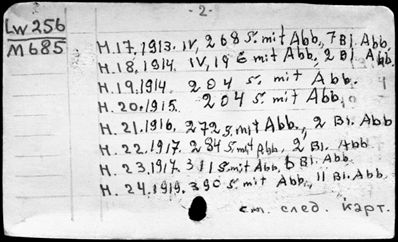 - 2. -
Lw 256
M 685
H. 17. 1913. IV, 268 S. mit Abb., 7 Bl. Abb.
H. 18. 1914. IV, 196 S. mit Abb., 2 Bl. Abb.
H. 19. 1914. 204 S. mit Abb.
H. 20. 1915. 204 S. mit Abb.
H. 21. 1916. 272 S. mit Abb., 2 Bl. Abb.
H. 22. 1917. 284 S. mit Abb., 2 Bl. Abb
H. 23. 1917. 311 S. mit Abb, 6 Bl. Abb.
H. 24. 1919. 390 S. mit Abb., 11 Bl. Abb.
см. след. карт.